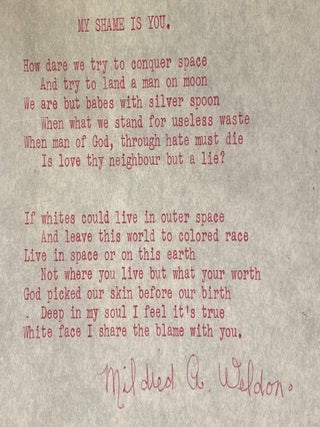 MY SHAME IS YOU.
How dare we try to conquer space
And try to land a man on moon
We are but babes with silver spoon
When what we stand for useless waste
When man of God, through hate must die
Is love thy neighbour but a lie?
If whites could live in outer space
And leave this world to colored race
Live in space or on this earth
Not where you live but what your worth
God picked our skin before our birth
. Deep in my soul I feel it's true
White face I share the blame with you.
Mildred A. Weldon.